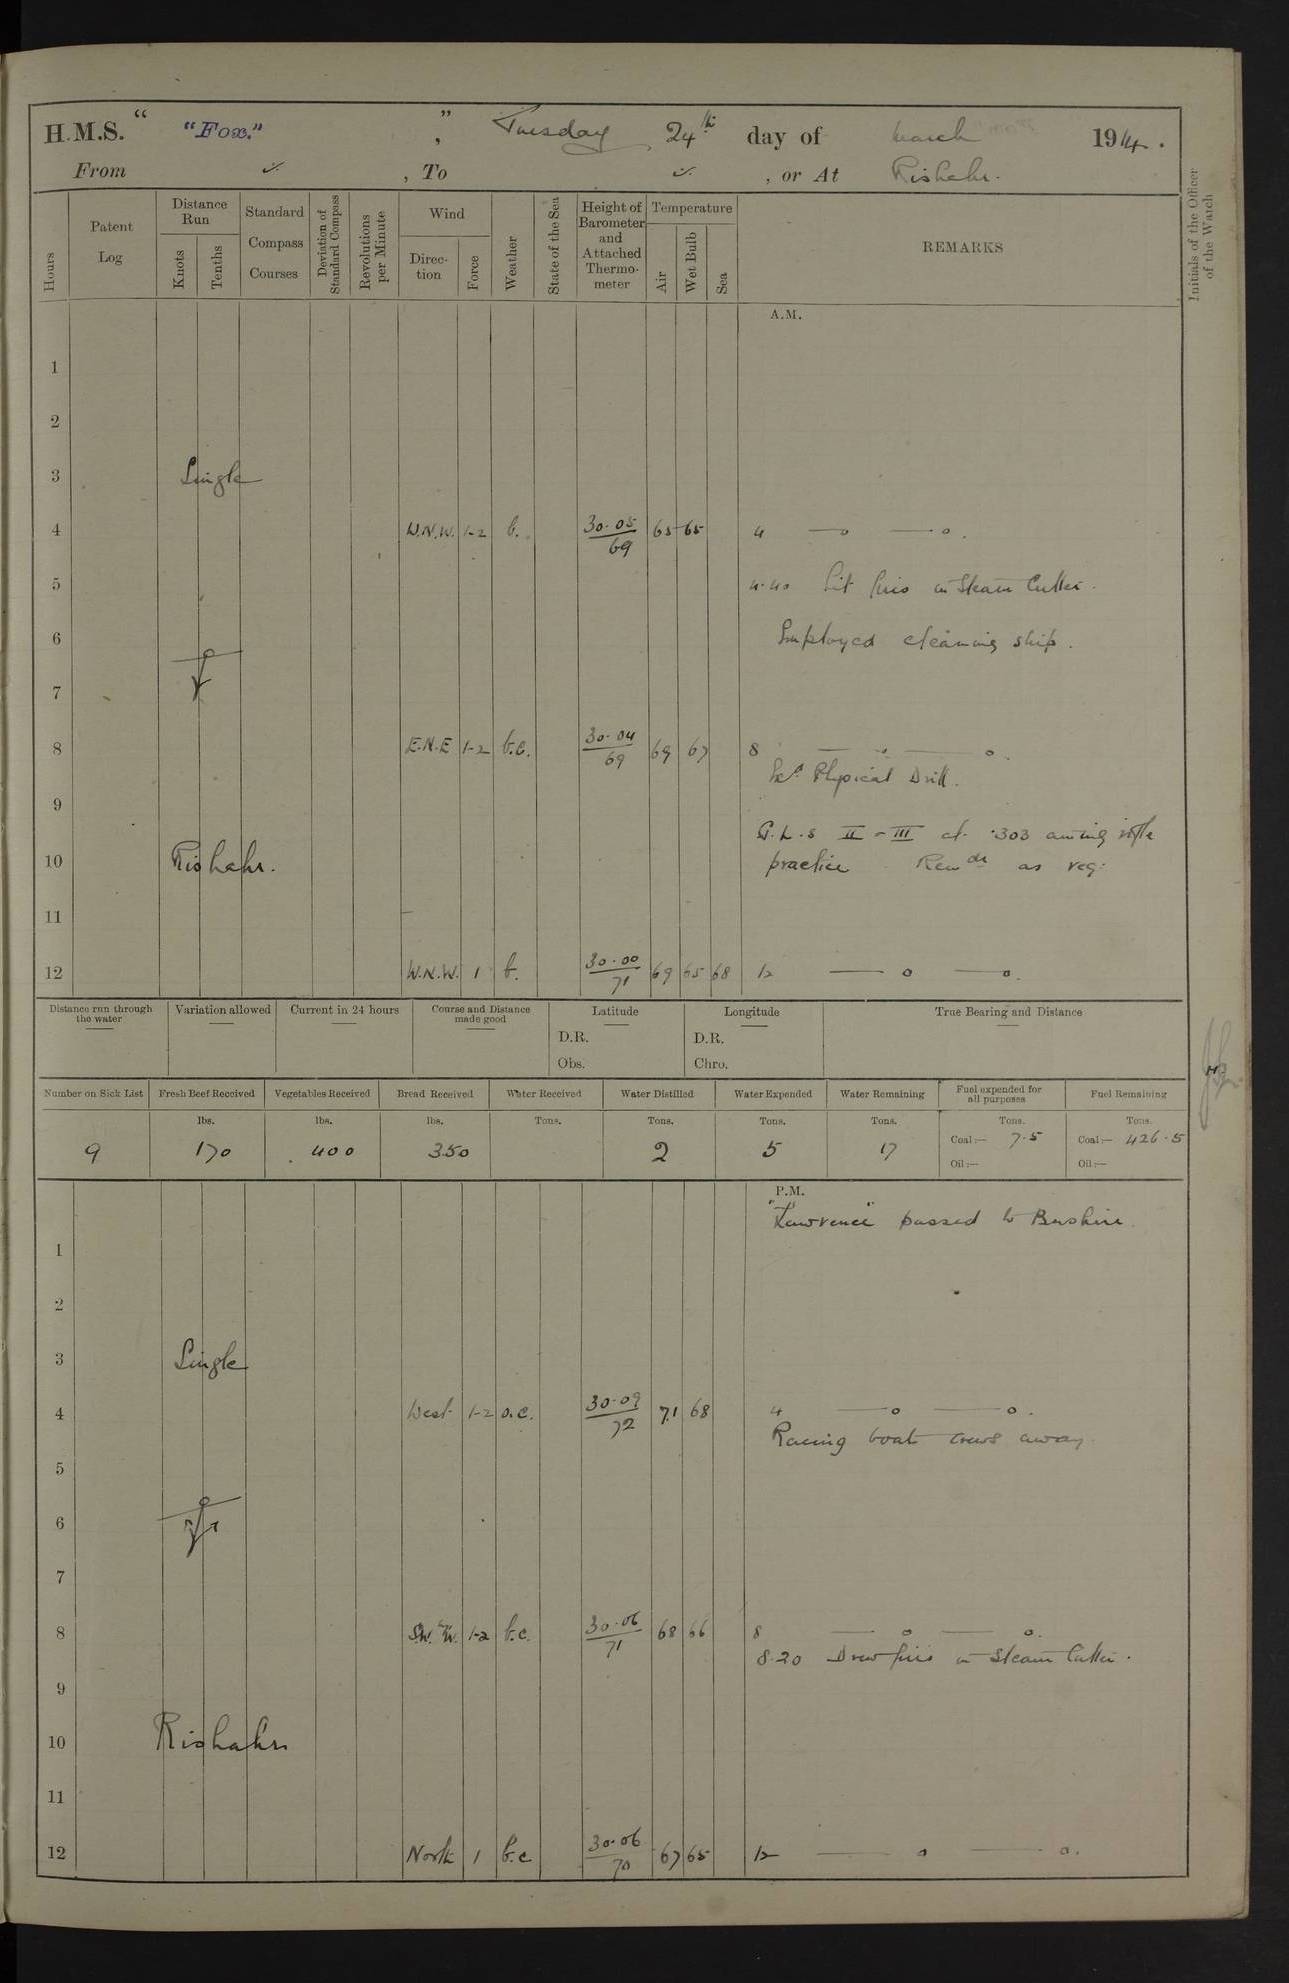 H.M.S. " "Fox." ", Tuesday 24th day of March 1914.
From , To , or At Rishahr.
Hours
Patent Log
Distance Run
Knots
Tenths
Standard Compass Courses
Deviation of Standard Compass
Revolutions per Minute
Wind
Direction
Force
Weather
State of the Sea
Height of Barometer and Attached Thermometer
Temperature
Air
Wet Bulb
Sea
REMARKS
Initials of the Officer of the Watch
A.M.
1
2
3 Single
4 W.N.W. 1-2 b. 30.05 69 65 65 4 — o — o.
5 4.40 Lit fires in Steam Cutter.
6 Employed cleaning ship.
7
8 E.N.E 1-2 b.c. 30.04 69 69 67 8 — o — o.
Physical Drill.
9
G.L.s II & III at .303 aiming rifle
10 Rishahr. practice Remdr as req:
11
12 W.N.W. 1 b. 30.00 71 69 65 68 12 — o — o.
Distance run through the water
Variation allowed
Current in 24 hours
Course and Distance made good
Latitude
D.R.
Obs.
Longitude
D.R.
Chro.
True Bearing and Distance
Number on Sick List Fresh Beef Received Vegetables Received Bread Received Water Received Water Distilled Water Expended Water Remaining Fuel expended for all purposes Fuel Remaining
lbs. lbs. lbs. Tons. Tons. Tons. Tons. Tons. Tons.
9 170 400 350 2 5 17 Coal:— 7.5 Coal:— 426.5
Oil:— Oil:—
P.M.
"Lawrence" passed to Bushire.
1
2
3 Single
4 West 1-2 o.c. 30.09 72 71 68 4 — o — o.
Racing boat crews away
5
6
7
8 S.W. by W. 1-2 b.c. 30.06 71 68 66 8 — o — o.
8.20 Drew fires in Steam Cutter.
9
10 Rishahr
11
12 North 1 b.c 30.06 70 67 65 12 — o — o.